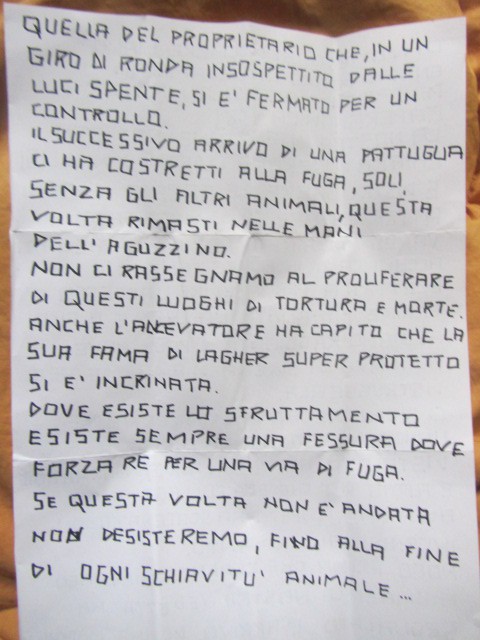 QUELLA DEL PROPRIETARIO CHE, IN UN
GIRO DI RONDA INSOSPETTITO DALLE
LUCI SPENTE, SI E' FERMATO PER UN
CONTROLLO.
IL SUCCESSIVO ARRIVO DI UNA PATTUGLIA
CI HA COSTRETTI ALLA FUGA, SOLI,
SENZA GLI ALTRI ANIMALI, QUESTA
VOLTA RIMASTI NELLE MANI
DELL'AGUZZINO.
NON CI RASSEGNAMO AL PROLIFERARE
DI QUESTI LUOGHI DI TORTURA E MORTE.
ANCHE L'ALLEVATORE HA CAPITO CHE LA
SUA FAMA DI LAGHER SUPER PROTETTO
SI E' INCRINATA.
DOVE ESISTE LO SFRUTTAMENTO
ESISTE SEMPRE UNA FESSURA DOVE
FORZARE PER UNA VIA DI FUGA.
SE QUESTA VOLTA NON E' ANDATA
NON DESISTEREMO, FINO ALLA FINE
DI OGNI SCHIAVITU' ANIMALE...